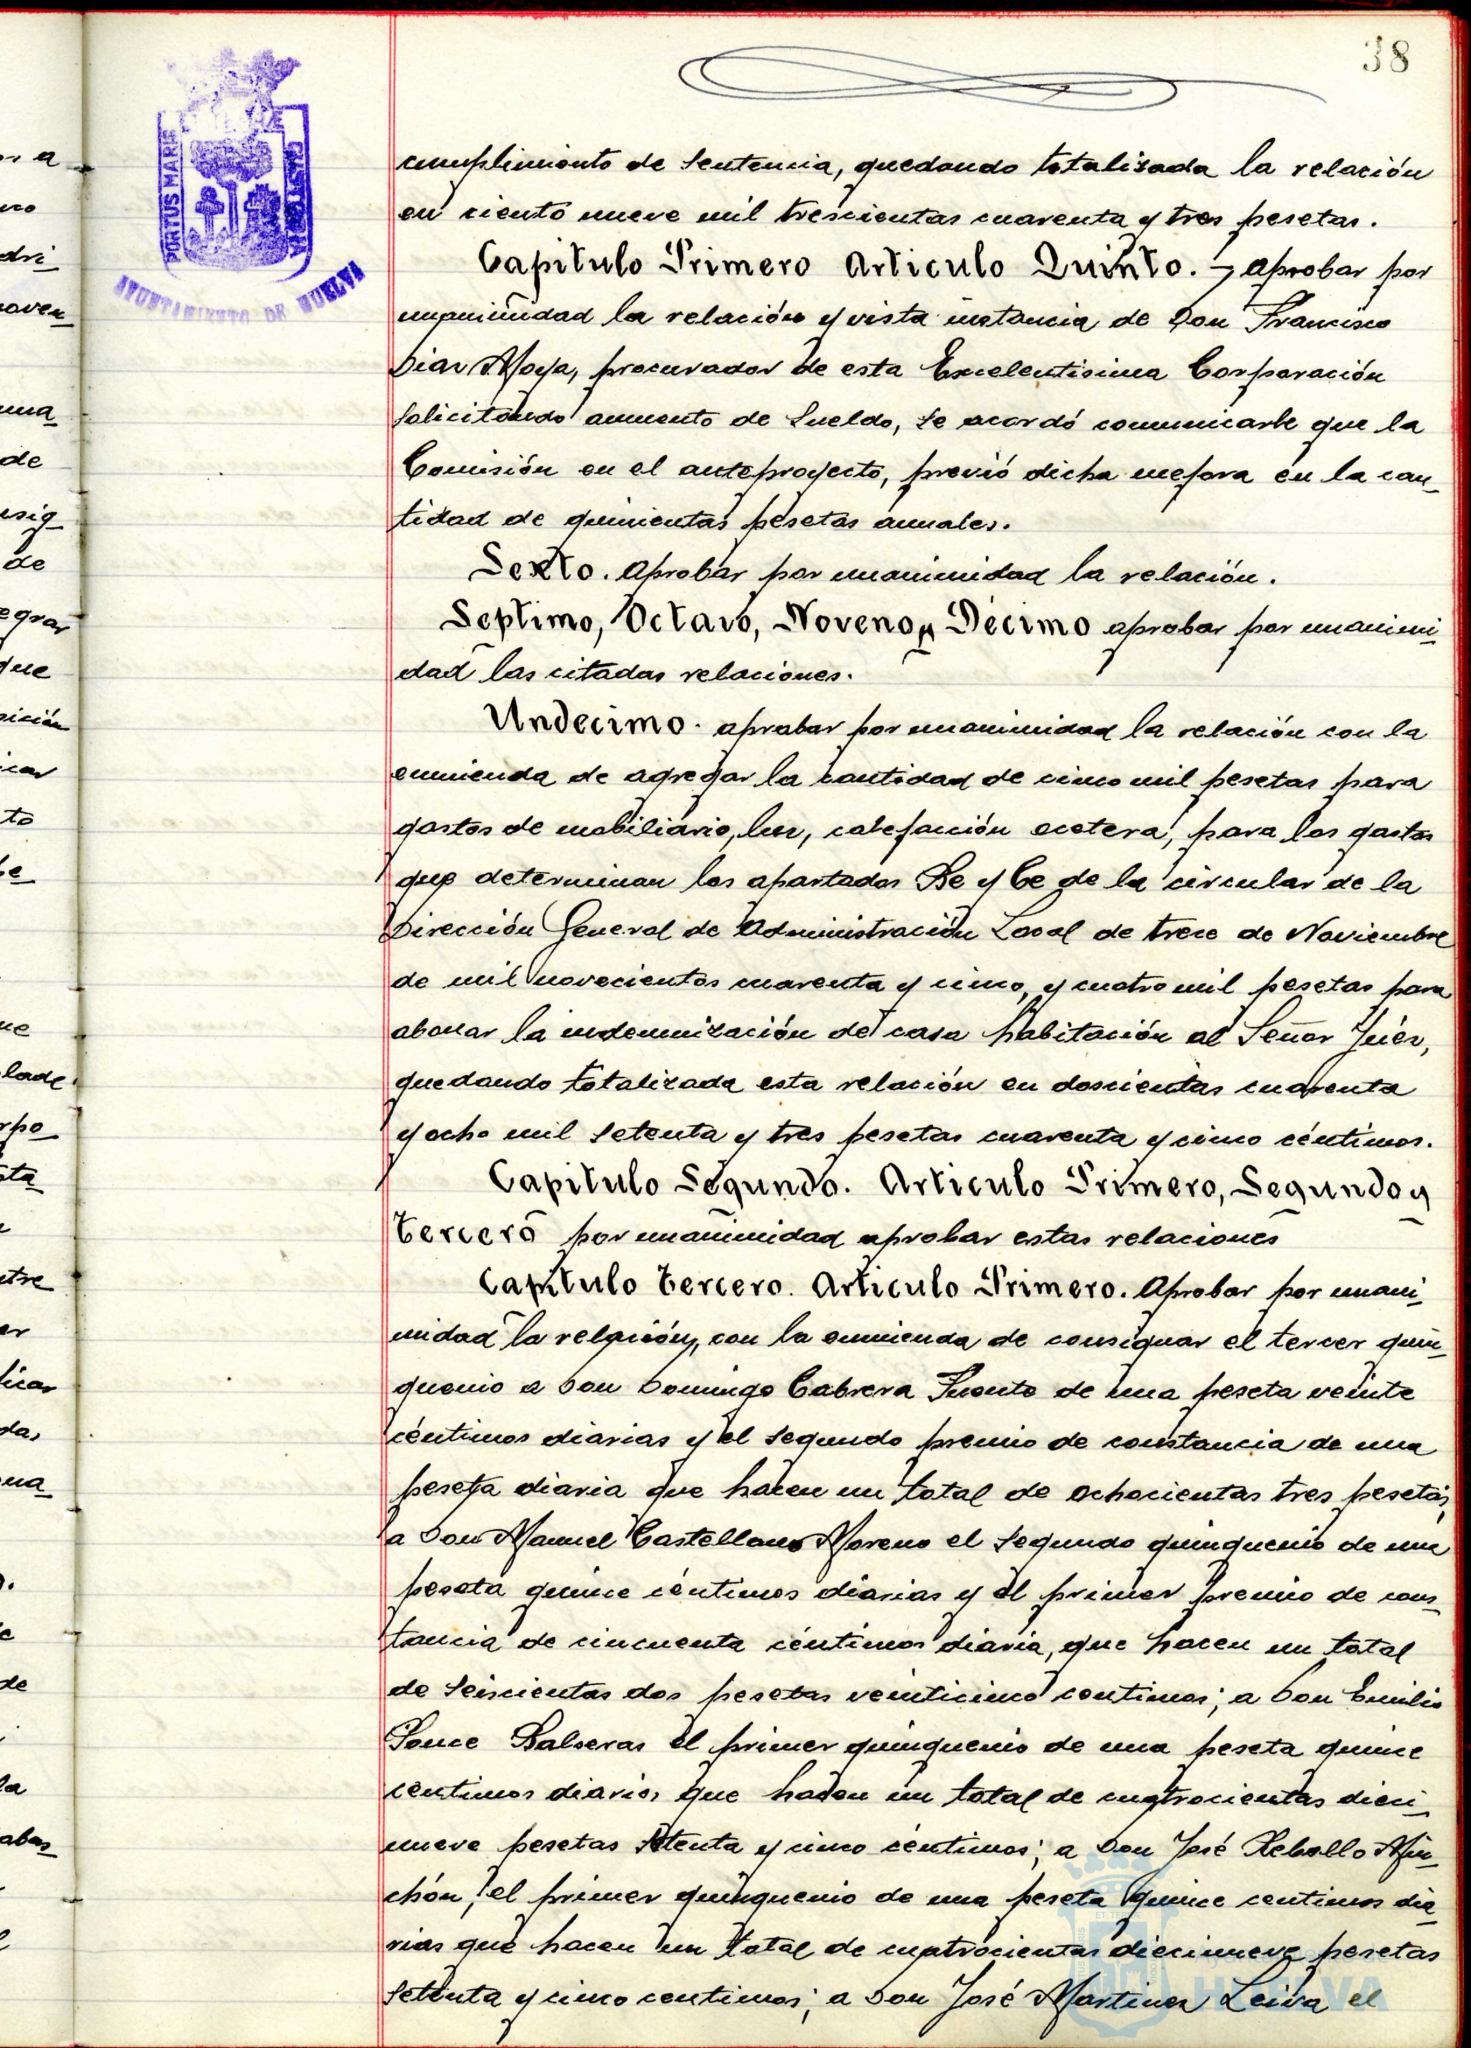 38
PORTUS MARIS
CUSTODIA
AYUNTAMIENTO DE HUELVA
cumplimiento de sentencia, quedando totalizada la relación
en ciento nueve mil trescientas cuarenta y tres pesetas.
Capitulo Primero Articulo Quinto. aprobar por
unanimidad la relación y vista instancia de Don Francisco
Diaz Moya, procurador de esta Excelentisima Corporación
solicitando aumento de sueldo, se acordó comunicarle que la
Comisión en el anteproyecto, previó dicha mejora en la can_
tidad de quinientas pesetas anuales.
Sexto. aprobar por unanimidad la relación.
Septimo, Octavo, Noveno y Décimo aprobar por unanimi_
dad las citadas relaciones.
Undecimo. aprobar por unanimidad la relación con la
enmienda de agregar la cantidad de cinco mil pesetas para
gastos de mobiliario, luz, calefacción ecetera, para los gastos
que determinan los apartados Be y Ce de la circular de la
Dirección General de Administración Local de trece de Noviembre
de mil novecientos cuarenta y cinco, y cuatro mil pesetas para
abonar la indemnización de casa habitación al Señor Juéz,
quedando totalizada esta relación en doscientas cuarenta
y ocho mil setenta y tres pesetas cuarenta y cinco céntimos.
Capitulo Segundo. Articulo Primero, Segundo y
tercero por unanimidad aprobar estas relaciones
Capitulo tercero. Articulo Primero. Aprobar por unani_
midad la relación, con la enmienda de consignar el tercer quin_
quenio a Don Domingo Cabrera Puente de una peseta veinte
céntimos diarias y el segundo premio de constancia de una
peseta diaria que hacen un total de ochocientas tres pesetas,
a Don Manuel Castellano Moreno el segundo quinquenio de una
peseta quince céntimos diarias y el primer premio de cons_
tancia de cincuenta céntimos diaria, que hacen un total
de seiscientas dos pesetas veinticinco centimos; a Don Emilio
Ponce Balseras el primer quinquenio de una peseta quince
centimos diarios que hacen un total de cuatrocientas dieci_
nueve pesetas setenta y cinco céntimos; a Don José Rebollo Min_
chón, el primer quinquenio de una peseta quince centimos dia_
rias que hacen un total de cuatrocientas diecinueve pesetas
setenta y cinco centimos; a Don José Martinez Leiva el
HUELVA